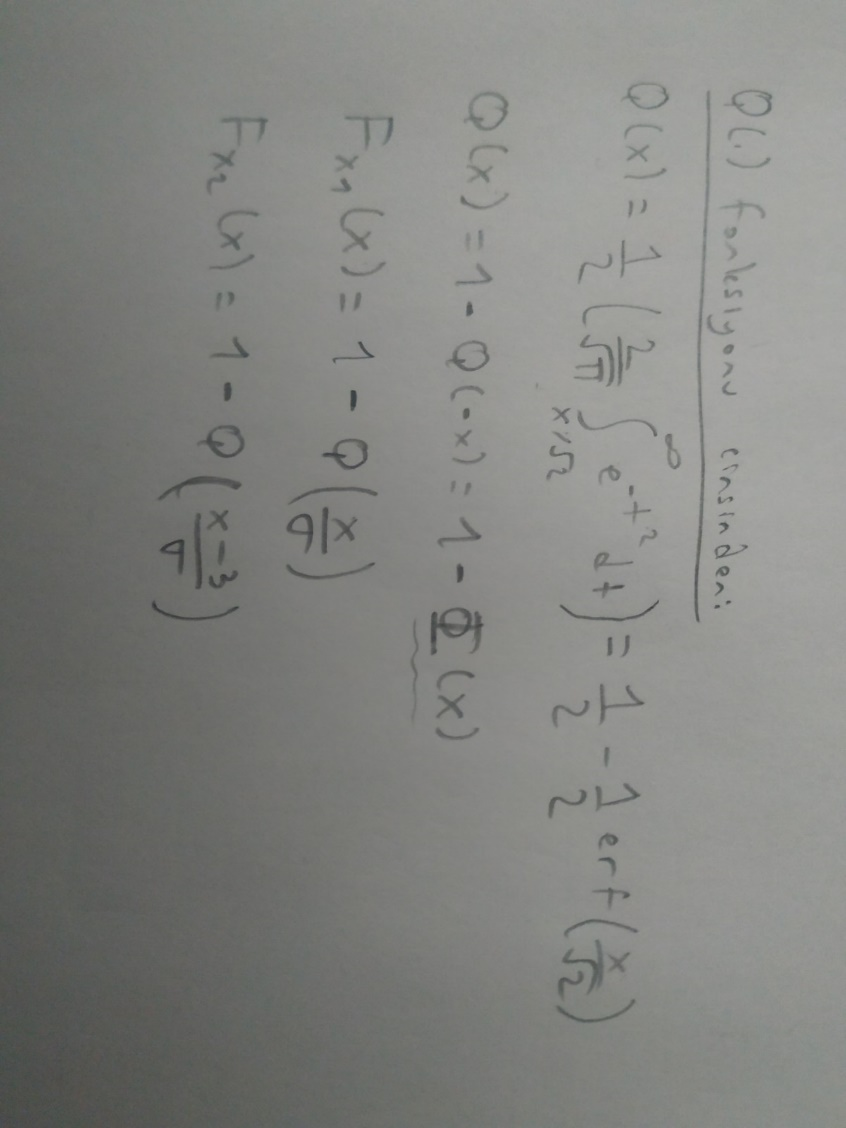 Q(.) fonksiyonu cinsinden:
Q(x) = 1/2 (2/√π ∫_{x/√2}^{∞} e^{-t²} dt) = 1/2 - 1/2 erf(x/√2)
Q(x) = 1 - Q(-x) = 1 - Φ(x)
F_{x₁}(x) = 1 - Q(x/σ)
F_{x₂}(x) = 1 - Q((x-3)/σ)